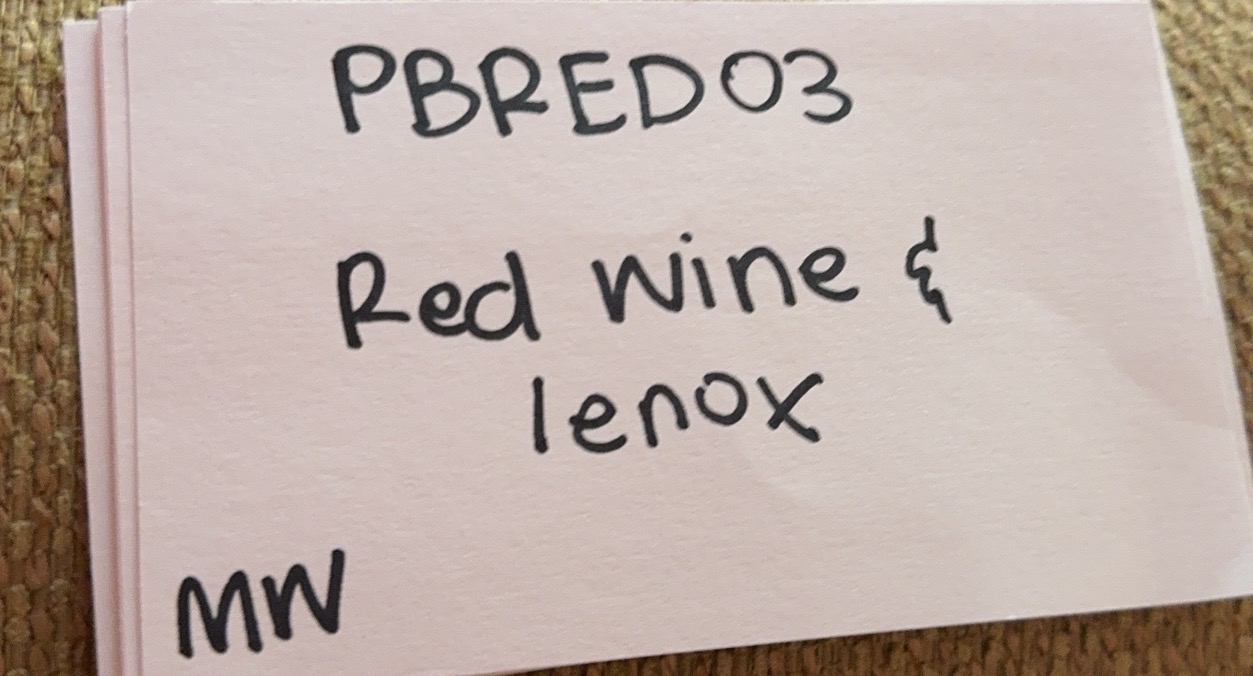 PBRED03
Red wine &
lenox
MW